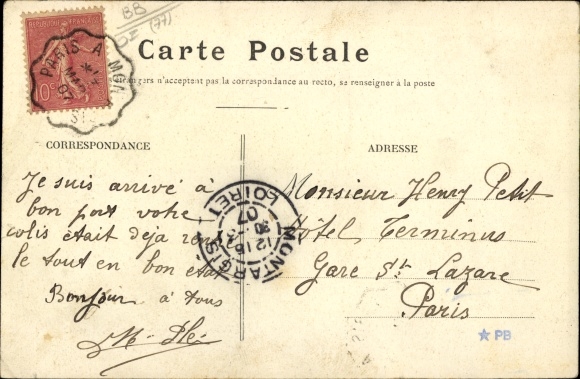 BB
(77)
Carte Postale
n'acceptent pas la correspondance au recto, se renseigner à la poste
RÉPUBLIQUE FRANÇAISE
10c
PARIS A MON
MAR
07
CORRESPONDANCE
ADRESSE
Je suis arrivé à
bon port votre
colis était deja
le tout en bon etat
Bonjour à tous
Monsieur Henry Petit
Hôtel Terminus
Gare St Lazare
Paris
MONTARGIS
LOIRET
12 15
30 -3
07
★ PB